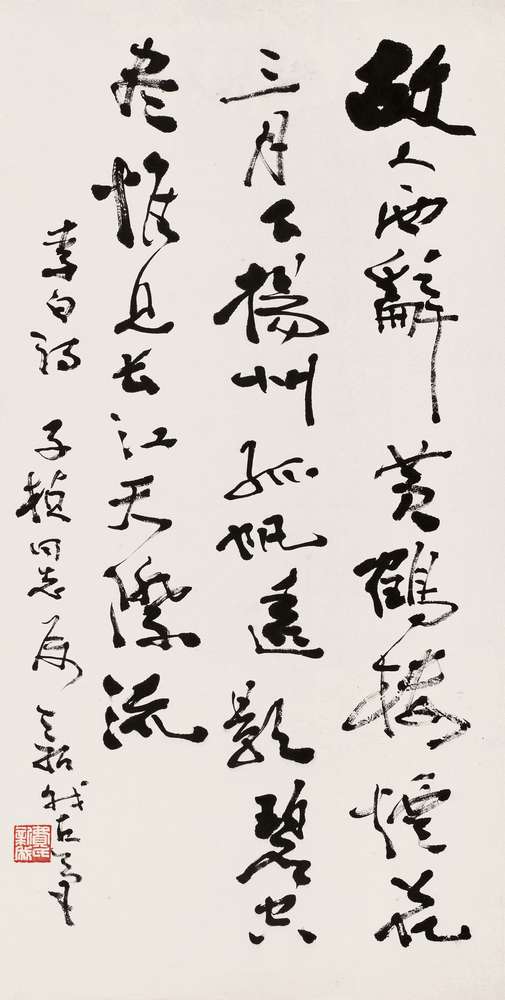 故人西辭黃鶴樓煙花
三月下揚州孤帆遠影碧空
盡惟見长江天際流
李白詩 子楨同志属 新我左筆